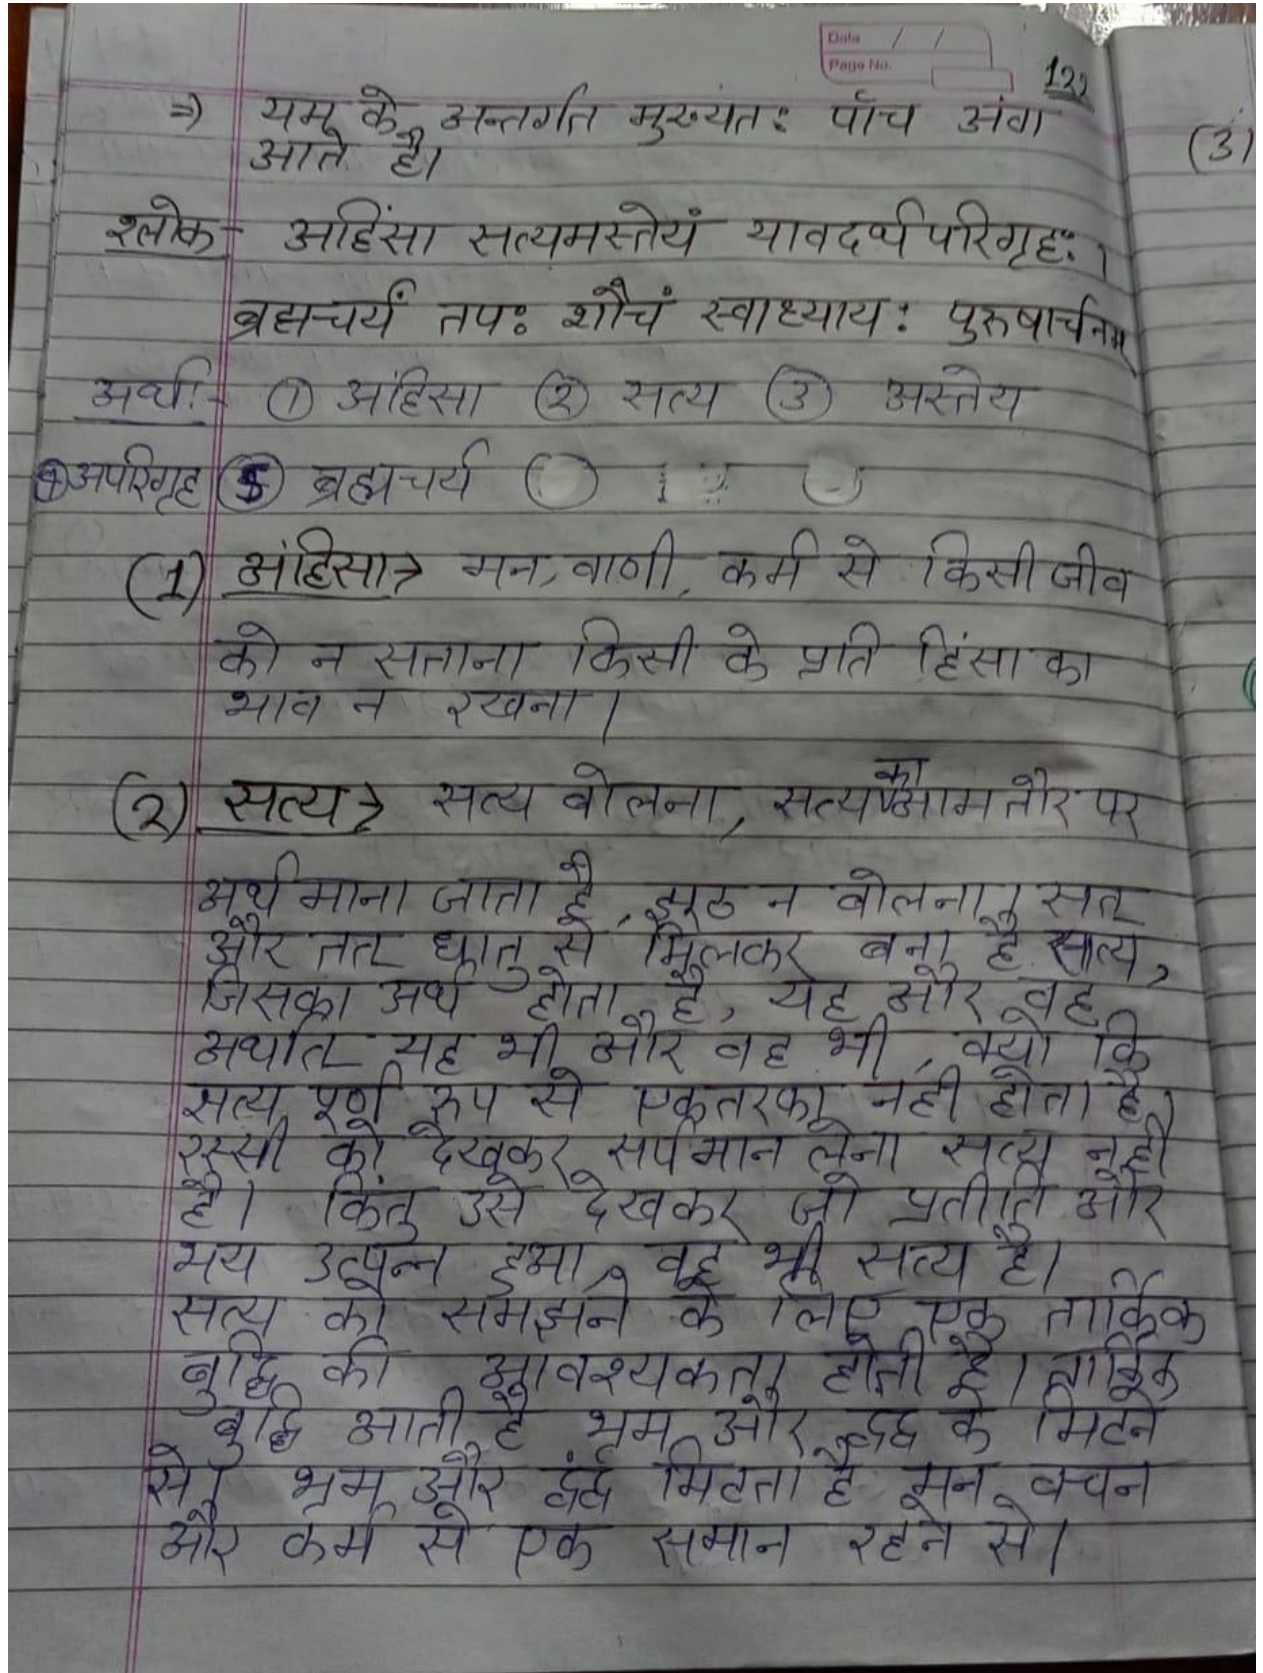 Date / /
Page No.
122
⇒ यम के अन्तर्गत मुख्यतः पाँच अंग
आते है।
(3)
श्लोक - अहिंसा सत्यमस्तेयं यावदर्थपरिगृहः।
ब्रह्मचर्यं तपः शौचं स्वाध्यायः पुरुषार्चनम्
अर्थः- ① अंहिसा ② सत्य ③ अस्तेय
④ अपरिगृह ⑤ ब्रह्मचर्य
(1) अंहिसा→ मन, वाणी, कर्म से किसी जीव
को न सताना किसी के प्रति हिंसा का
भाव न रखना।
(2) सत्य→ सत्य बोलना, सत्य का आम तौर पर
अर्थ माना जाता है, झूठ न बोलना, सत्
और तत् धातु से मिलकर बना है सत्य,
जिसका अर्थ होता है, यह और वह
अर्थात् यह भी और वह भी, क्यो कि
सत्य पूर्ण रुप से एकतरफा नही होता है,
रस्सी को देखकर सर्प मान लेना सत्य नही
है। किंतु उसे देखकर जो प्रतीति और
भय उत्पन्न हुआ वह भी सत्य है।
सत्य को समझने के लिए एक तार्किक
बुद्धि की आवश्यकता होती है। तार्किक
बुद्धि आती है भ्रम और द्वंद के मिटने
से। भ्रम और द्वंद मिटता है मन, वचन
और कर्म से एक समान रहने से।